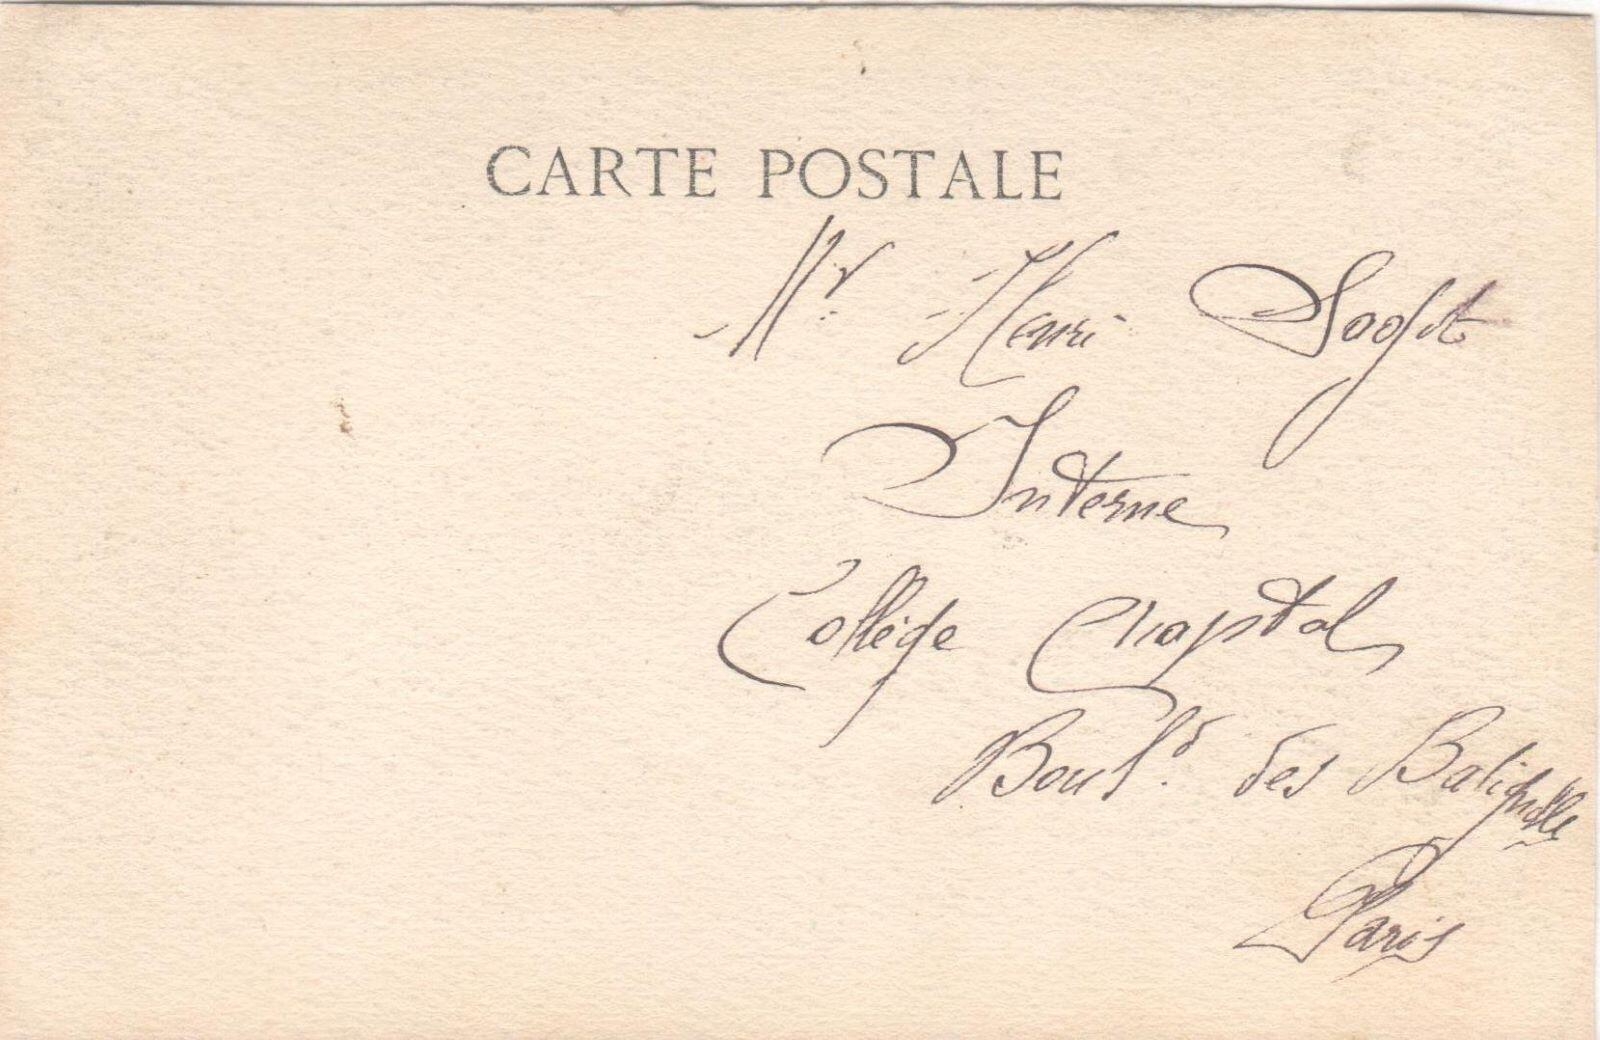 CARTE POSTALE
Mr. Henri Sagot
Interne
Collège Chaptal
Boul.d des Batignolles
Paris